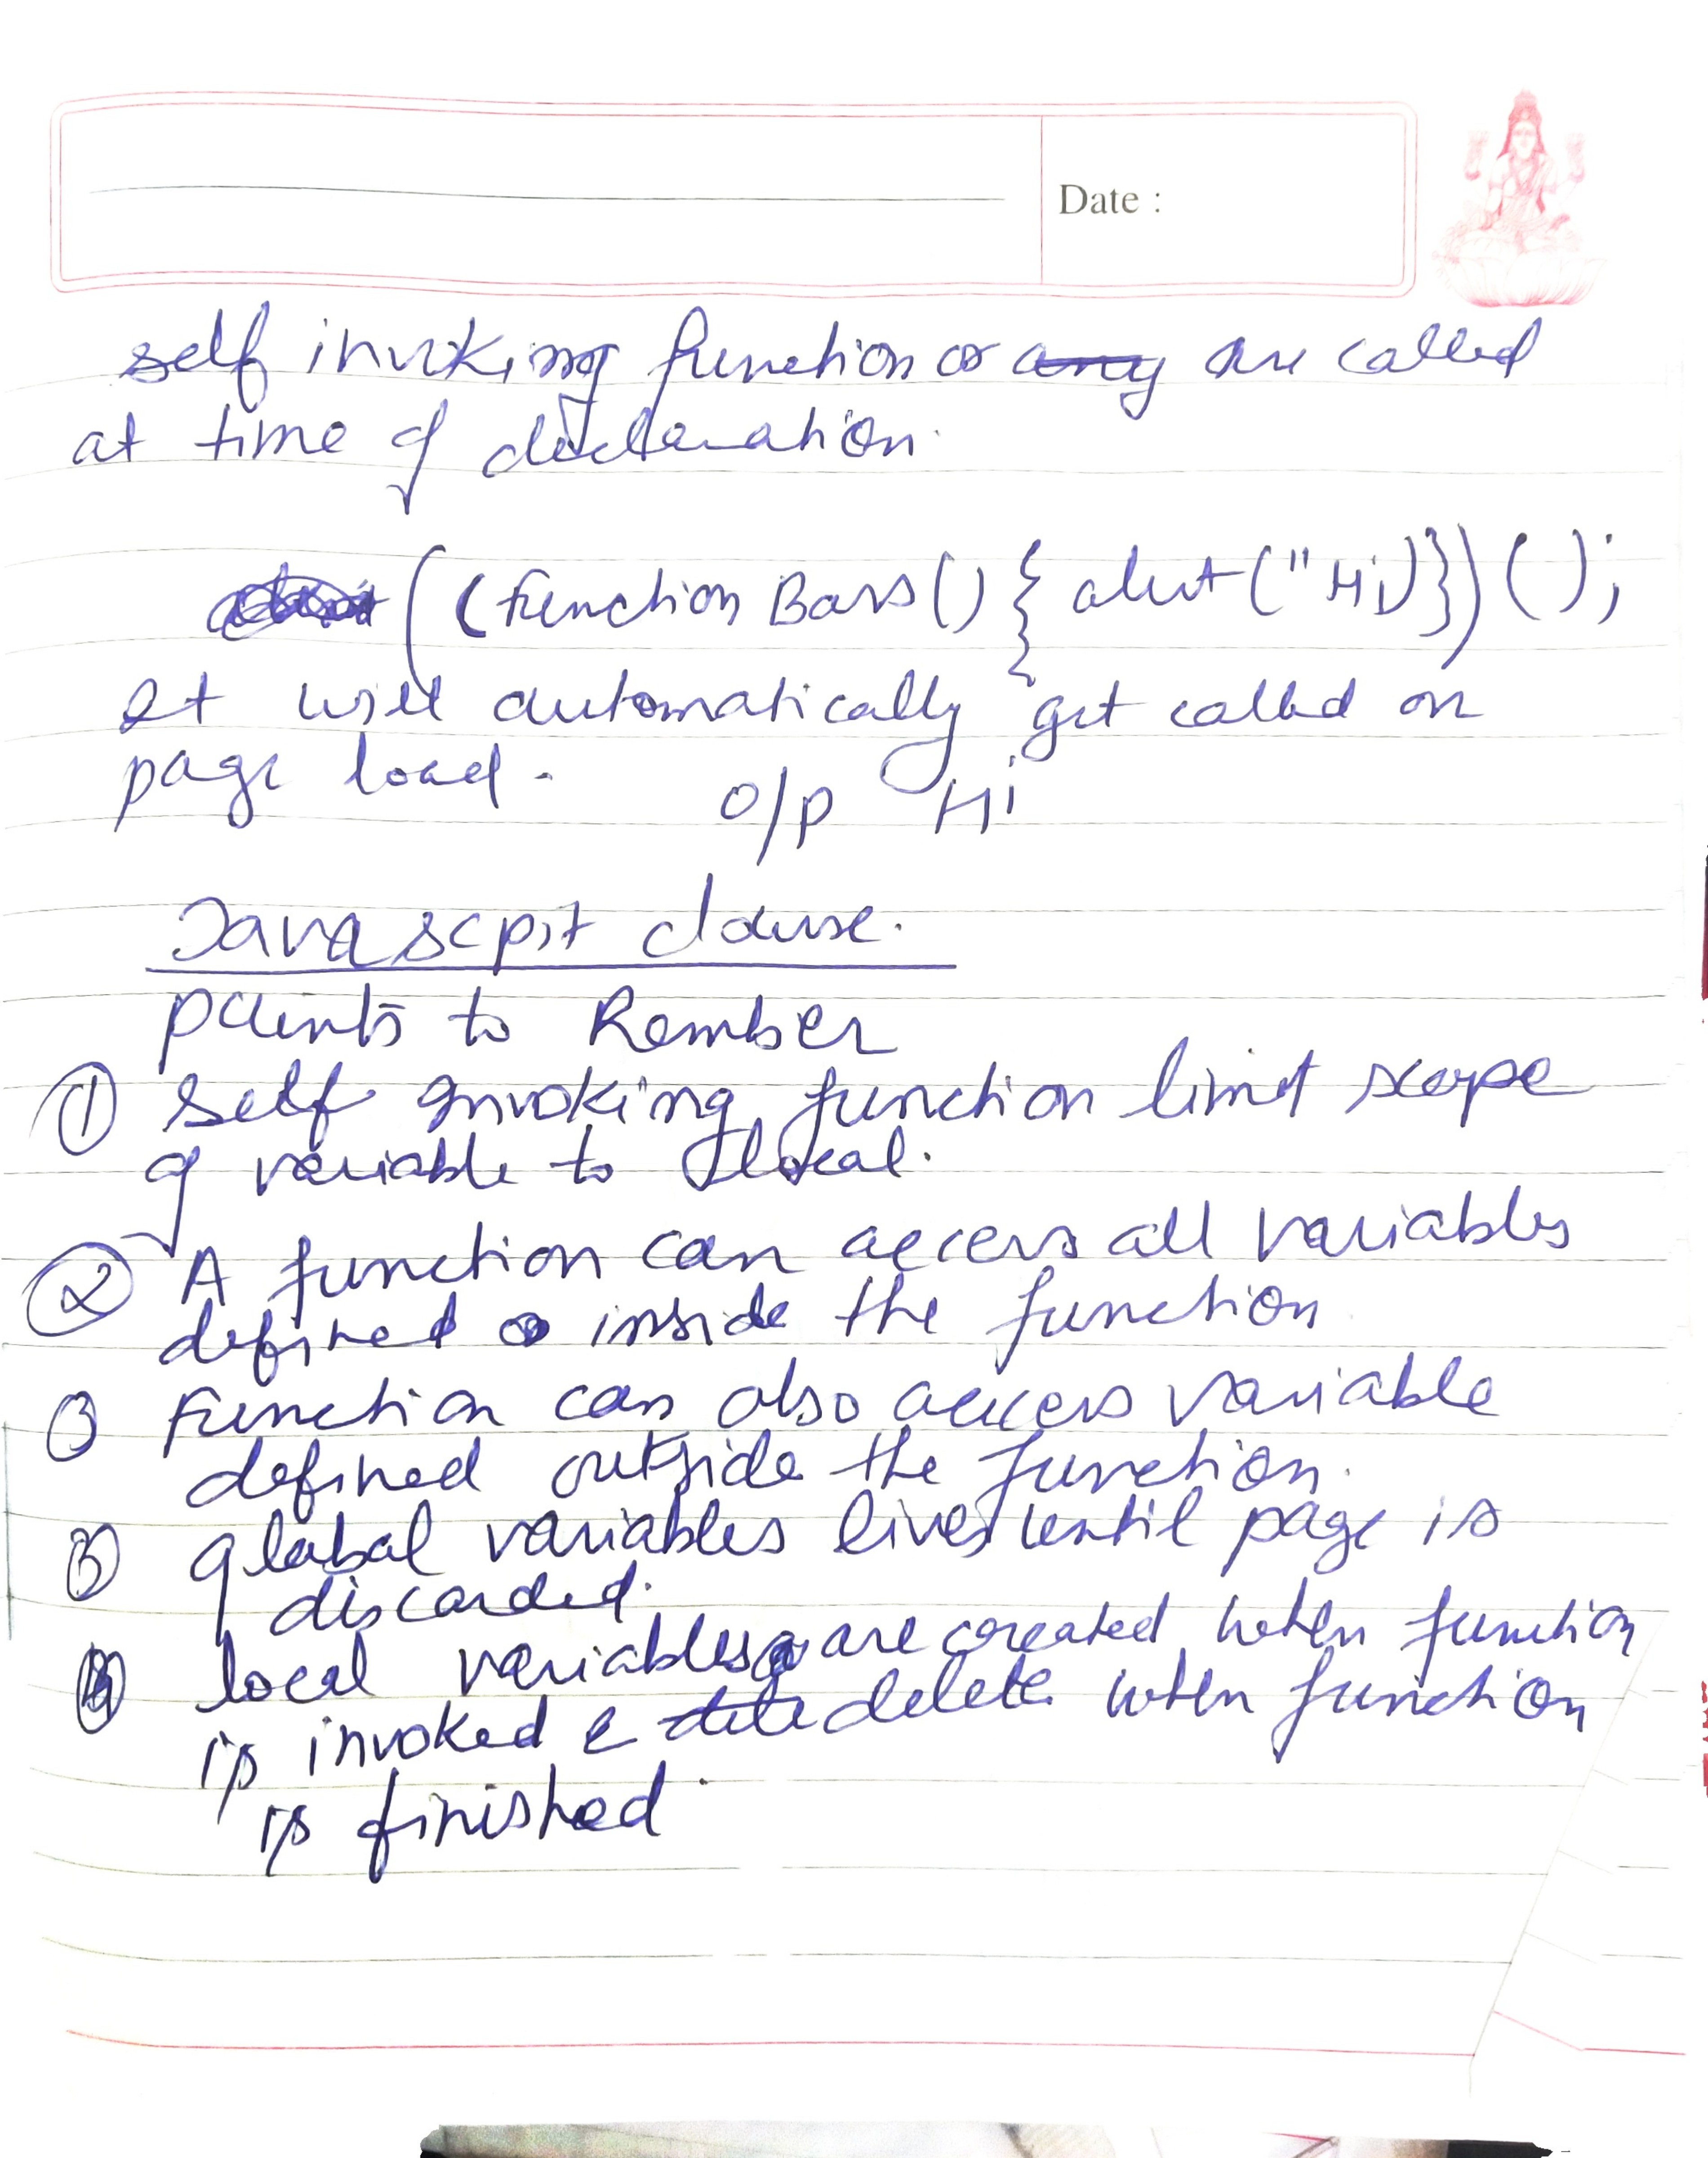 Date :
self invoking function or any are called
at time of declaration.
((Function Bars() { alert("Hi)})();
It will automatically get called on
page load.
o/p Hi
Javascpit clause.
Paints to Rember
① Self Invoking function limit scope
of variable to local.
② A function can access all variables
defined inside the function
③ Function can also access variable
defined outside the function.
③ global variables lives until page is
discarded.
④ local variables are created when function
is invoked & delete when function
is finished